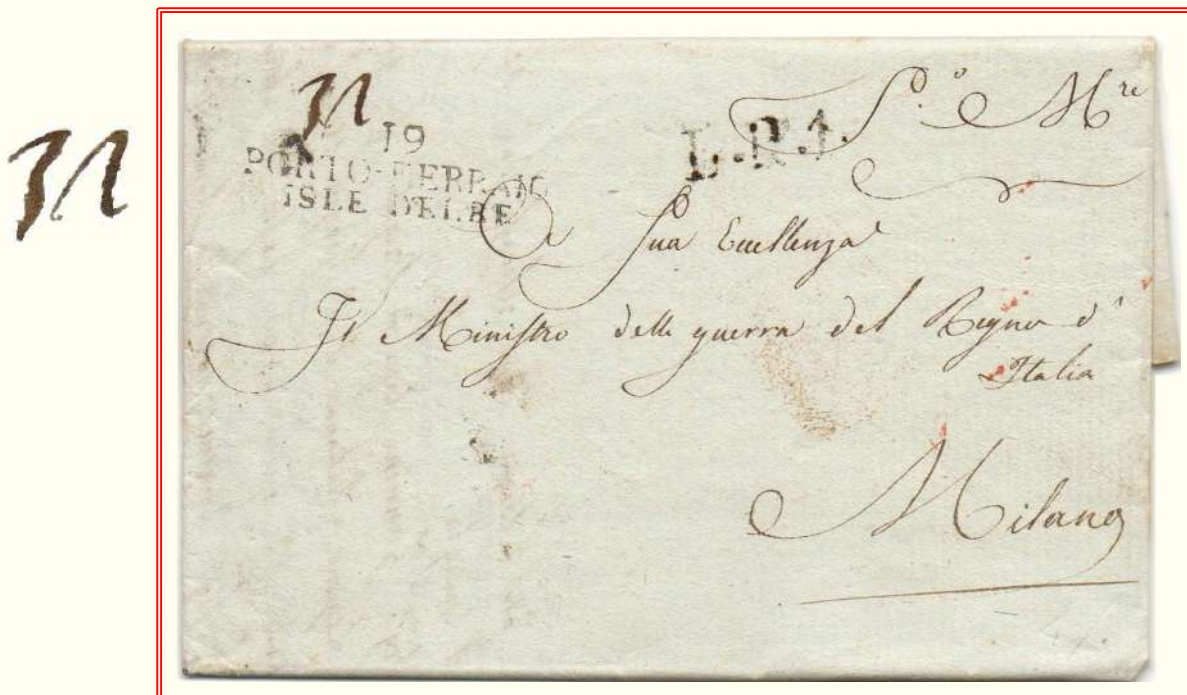 19
PORTO-FERRAIO
ISLE D'ELBE
L.R.1.
S.º Mre
Sua Eccellenza
Il Ministro della guerra del Regno d'
Italia
Milano